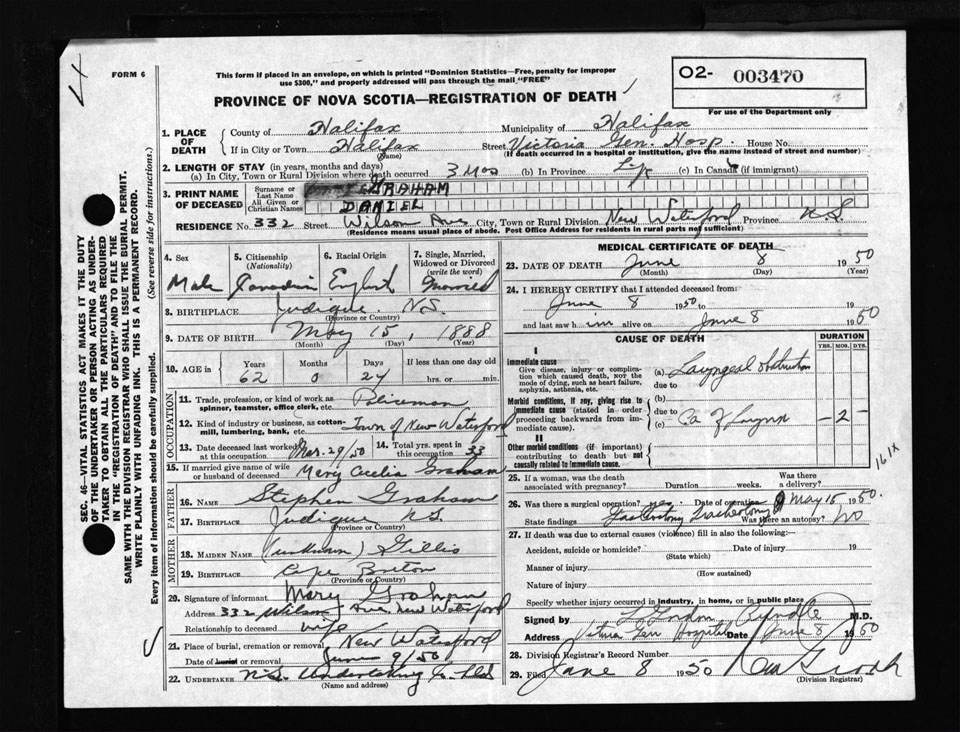 FORM 6
This form if placed in an envelope, on which is printed "Dominion Statistics—Free, penalty for improper
use $300," and properly addressed will pass through the mail "FREE"
PROVINCE OF NOVA SCOTIA—REGISTRATION OF DEATH
O2- 003470
For use of the Department only
1. PLACE OF DEATH
County of Halifax Municipality of Halifax
If in City or Town Halifax Street Victoria Gen. Hosp. House No.
(Name) (If death occurred in a hospital or institution, give the name instead of street and number)
2. LENGTH OF STAY (in years, months and days)
(a) In City, Town or Rural Division where death occurred 3 Mos (b) in Province Life (c) In Canada (if immigrant)
3. PRINT NAME OF DECEASED
Surname or Last Name GRAHAM
All Given or Christian Names DANIEL
RESIDENCE No. 332 Street Wilson Ave City, Town or Rural Division New Waterford Province N.S.
(Residence means usual place of abode. Post Office Address for residents in rural parts not sufficient)
4. Sex Male
5. Citizenship (Nationality) Canadian
6. Racial Origin English
7. Single, Married, Widowed or Divorced (write the word) Married
8. BIRTHPLACE Judique N.S.
(Province or Country)
9. DATE OF BIRTH May 15, 1888
(Month) (Day) (Year)
10. AGE in Years Months Days If less than one day old
62 0 24 hrs. or min.
OCCUPATION
11. Trade, profession or kind of work as spinner, teamster, office clerk, etc. Policeman
12. Kind of industry or business, as cotton-mill, lumbering, bank, etc. Town of New Waterford
13. Date deceased last worked at this occupation Mar. 29/50
14. Total yrs. spent in this occupation 33
15. If married give name of wife or husband of deceased Mary Cecilia Graham
FATHER
16. Name Stephen Graham
17. Birthplace Judique N.S.
(Province or Country)
MOTHER
18. Maiden Name (unknown) Gillis
19. Birthplace Cape Breton
(Province or Country)
20. Signature of informant Mary Graham
Address 332 Wilson Ave, New Waterford
Relationship to deceased wife
21. Place of burial, cremation or removal New Waterford
Date of burial or removal June 9/50
22. UNDERTAKER N.S. Undertaking Co. Ltd
(Name and address)
MEDICAL CERTIFICATE OF DEATH
23. DATE OF DEATH June 8 1950
(Month) (Day) (Year)
24. I HEREBY CERTIFY that I attended deceased from:
June 8 1950 to 19
and last saw him alive on June 8 1950
CAUSE OF DEATH
DURATION
YRS. MOS. DYS.
I
Immediate cause
Give disease, injury or complication which caused death, nor the mode of dying, such as heart failure, asphyxia, asthenia, etc.
(a) Laryngeal obstruction
due to
Morbid conditions, if any, giving rise to immediate cause (stated in order proceeding backwards from immediate cause).
(b)
due to
(c) Ca of Larynx – 2 –
II
Other morbid conditions (if important) contributing to death but not causally related to immediate cause.
161X
25. If a woman, was the death associated with pregnancy? Duration weeks. Was there a delivery?
26. Was there a surgical operation? yes. Date of operation May 15 1950.
State findings Tracheotomy Was there an autopsy? NO
27. If death was due to external causes (violence) fill in also the following:—
Accident, suicide or homicide? Date of injury 19
(State which)
Manner of injury
(How sustained)
Nature of injury
Specify whether injury occurred in industry, in home, or in public place
Signed by M.D.
Address Victoria Gen Hospital Date June 8 1950
28. Division Registrar's Record Number
29. Filed June 8 1950
(Division Registrar)
SEC. 46—VITAL STATISTICS ACT MAKES IT THE DUTY
OF THE UNDERTAKER OR PERSON ACTING AS UNDER-
TAKER TO OBTAIN ALL THE PARTICULARS REQUIRED
IN THE "REGISTRATION OF DEATH" AND TO FILE THE
SAME WITH THE DIVISION REGISTRAR WHO SHALL ISSUE THE BURIAL PERMIT.
WRITE PLAINLY WITH UNFADING INK. THIS IS A PERMANENT RECORD.
Every item of information should be carefully supplied. (See reverse side for instructions.)